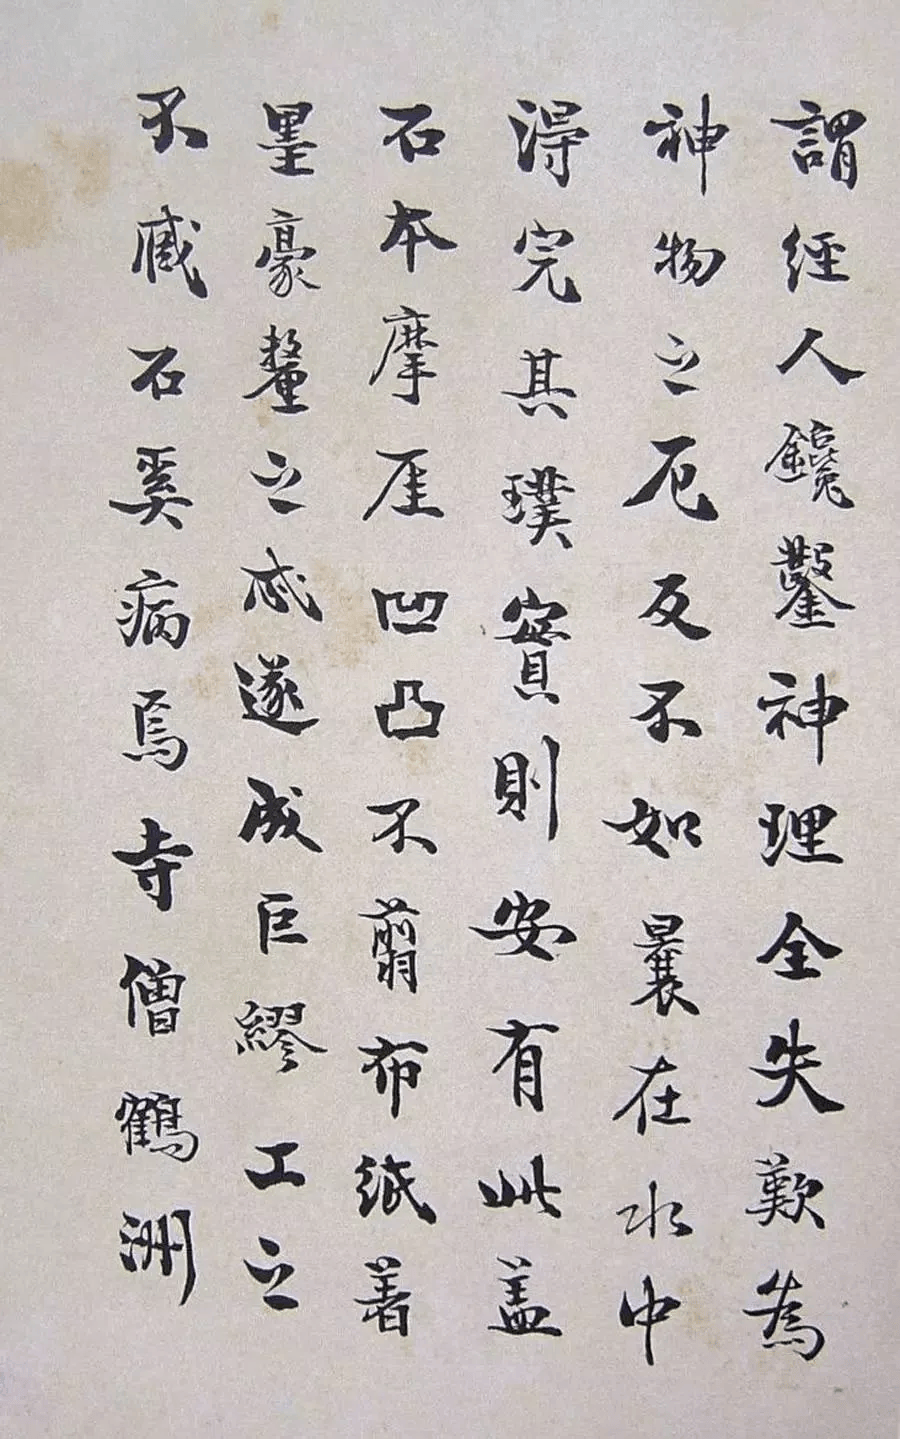 謂經人鑱鑿神理全失歎為
神物之厄反不如曩在水中
得完其璞寶則安有此蓋
石本摩厓凹凸不翦布紙着
墨豪釐之忒遂成巨繆工之
不臧石奚病焉寺僧鶴洲